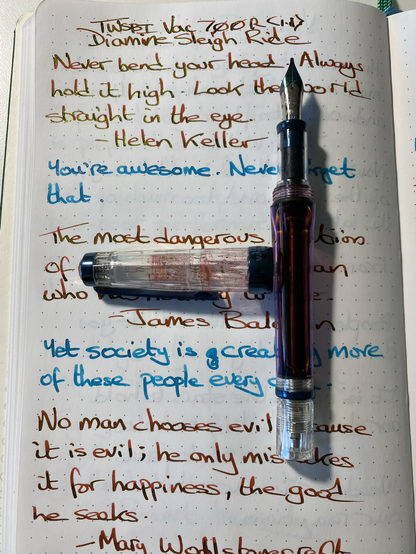 TWSBI Vac 700R (1.1)
Diamine Sleigh Ride
Never bend your head. Always
hold it high. Look the world
straight in the eye.
- Helen Keller
You're awesome. Never forget
that.
The most dangerous
of an
who
- James Baldwin
Yet society is creating more
of these people every
No man chooses evil because
it is evil; he only mistakes
it for happiness, the good
he seeks
- Mary Wollstonecraft